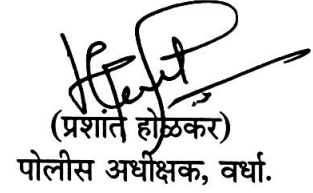 (प्रशांत होळकर)
पोलीस अधीक्षक, वर्धा.